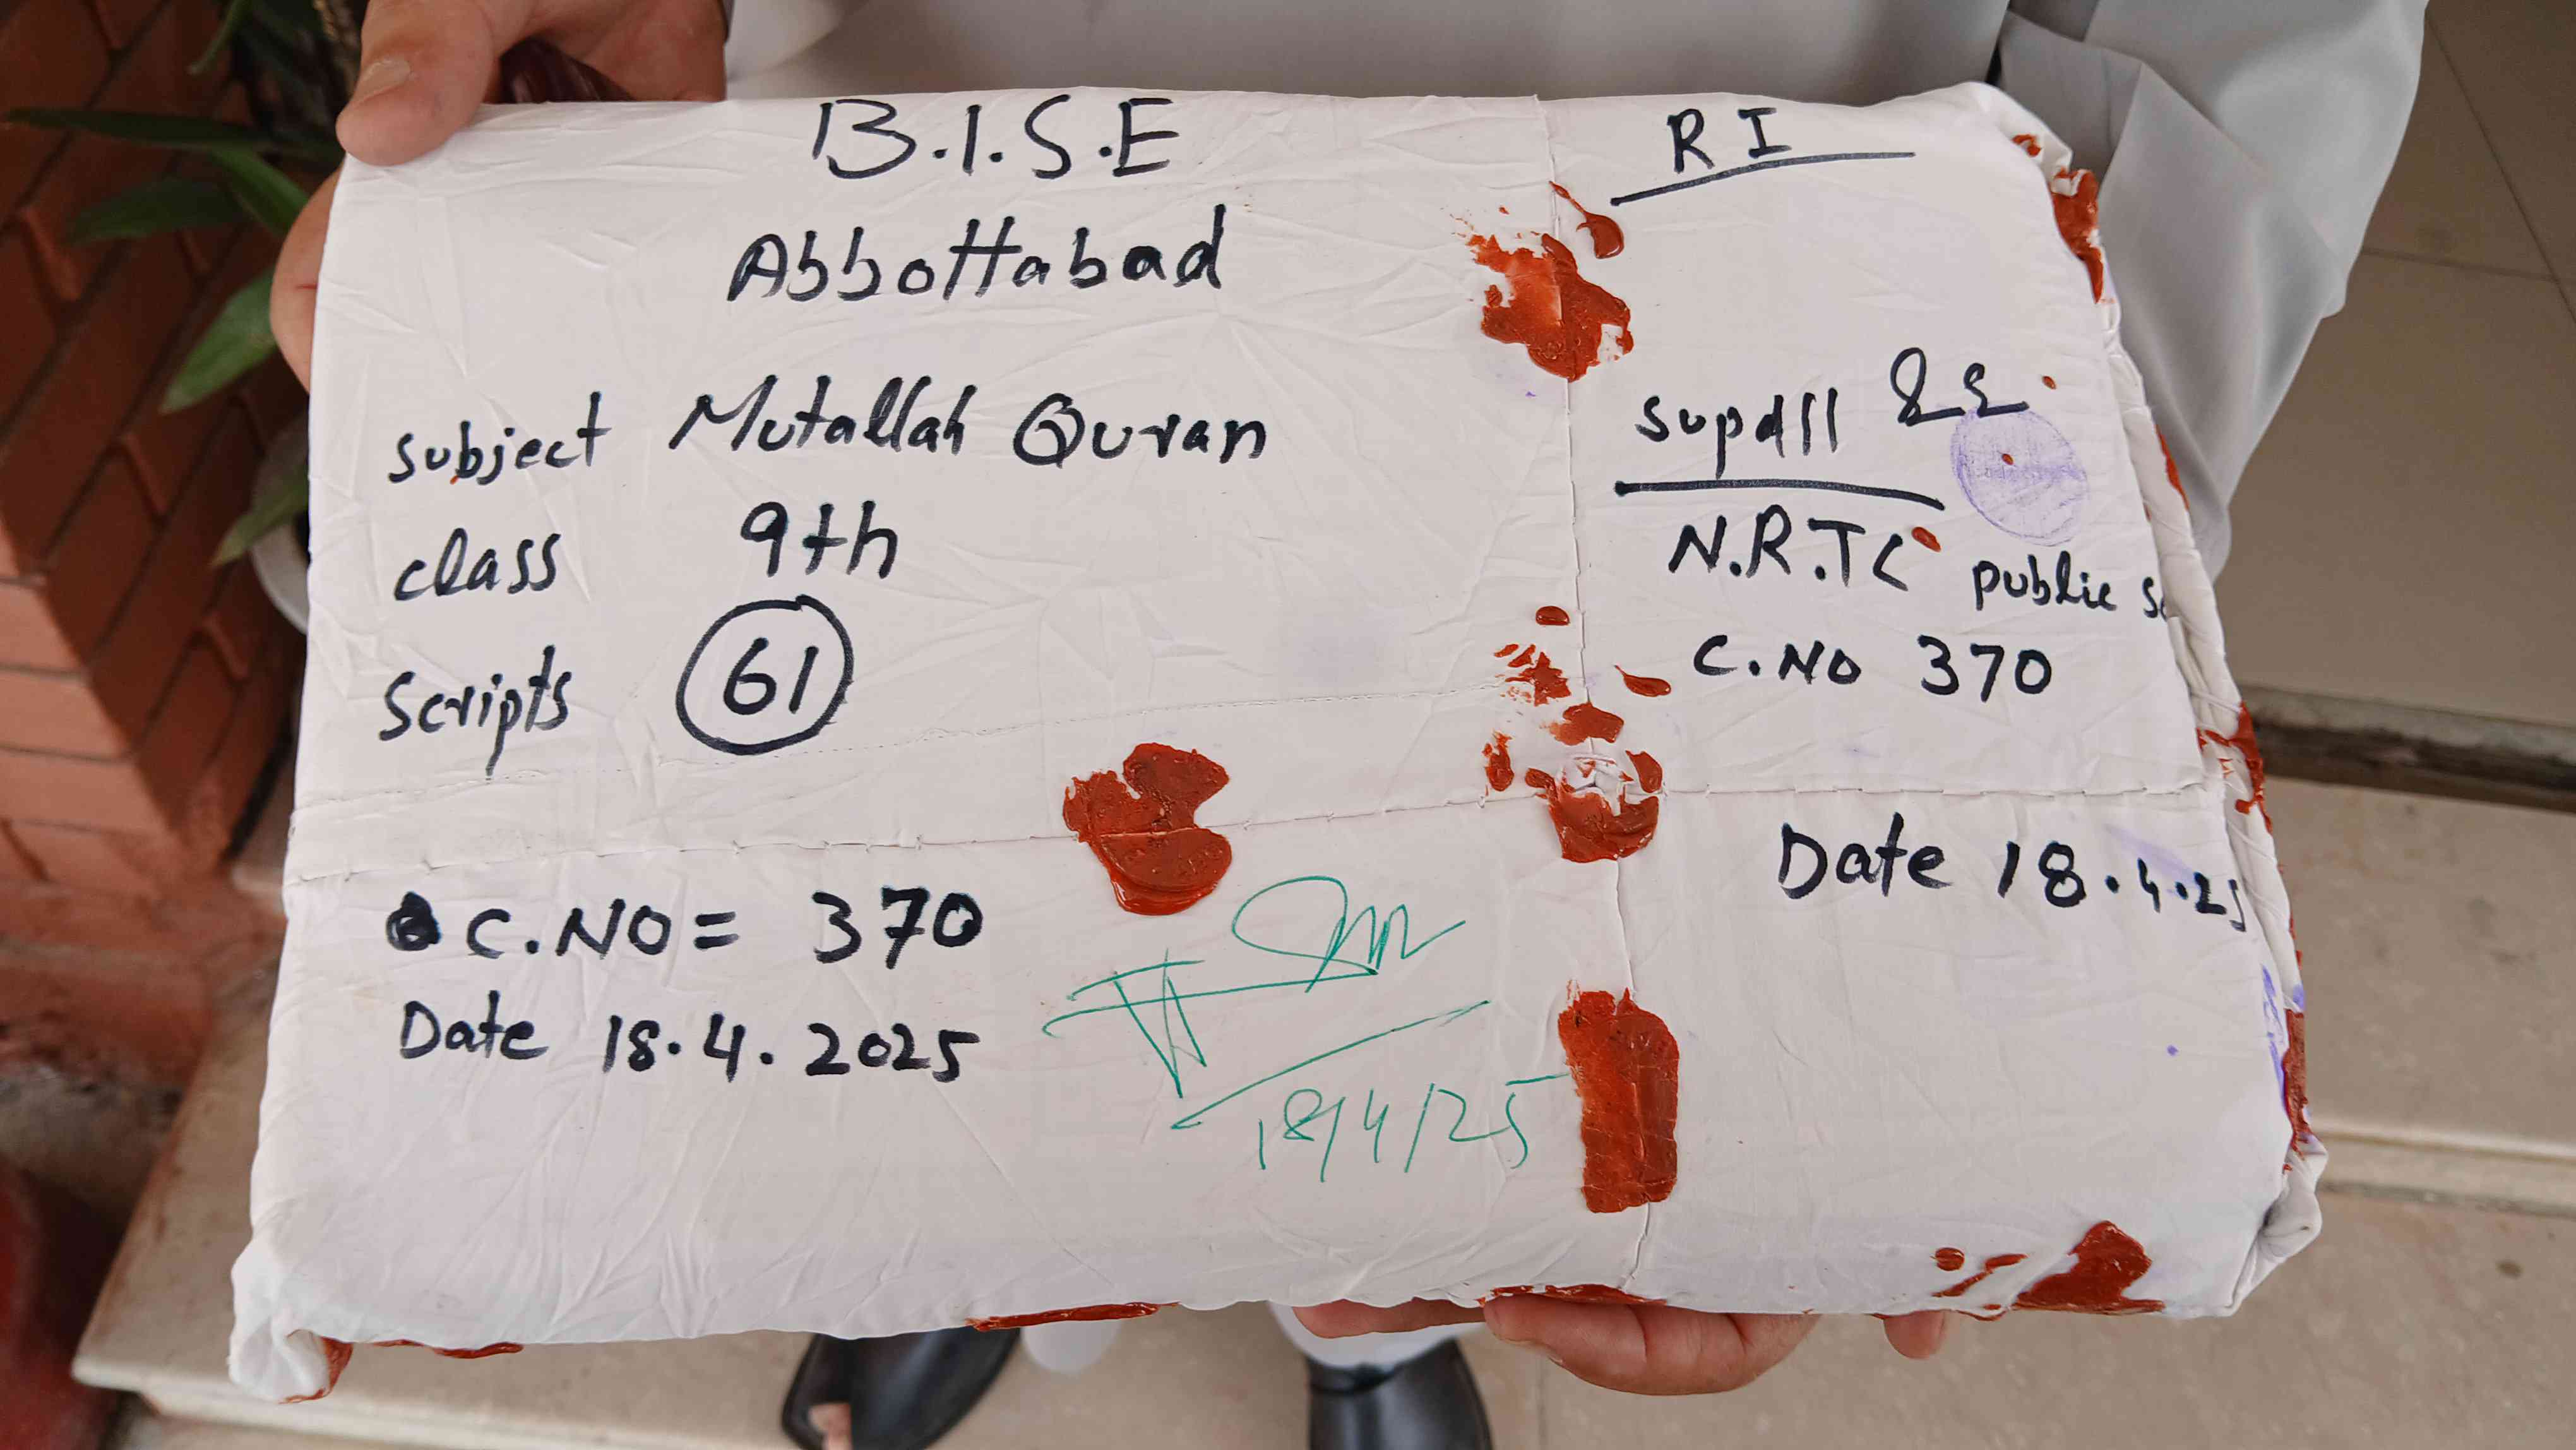 B.I.S.E
Abbottabad
subject Mutallah Quran
class 9th
Scripts 61
C.NO = 370
Date 18.4.2025
18/4/25
RI
supdtt
N.R.TC public s
C.NO 370
Date 18.4.25